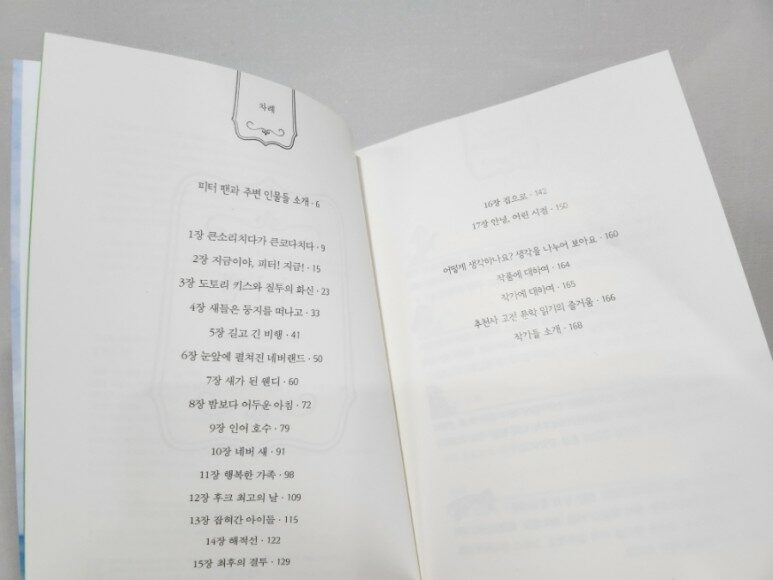 차례
피터 팬과 주변 인물들 소개 · 6
1장 큰소리치다가 큰코다치다 · 9
2장 지금이야, 피터! 지금! · 15
3장 도토리 키스와 질투의 화신 · 23
4장 새들은 둥지를 떠나고 · 33
5장 길고 긴 비행 · 41
6장 눈앞에 펼쳐진 네버랜드 · 50
7장 새가 된 웬디 · 60
8장 밤보다 어두운 아침 · 72
9장 인어 호수 · 79
10장 네버 새 · 91
11장 행복한 가족 · 98
12장 후크 최고의 날 · 109
13장 잡혀간 아이들 · 115
14장 해적선 · 122
15장 최후의 결투 · 129
16장 집으로 · 142
17장 안녕, 어린 시절 · 150
어떻게 생각하나요? 생각을 나누어 보아요 · 160
작품에 대하여 · 164
작가에 대하여 · 165
추천사 고전 문학 읽기의 즐거움 · 166
작가들 소개 · 168